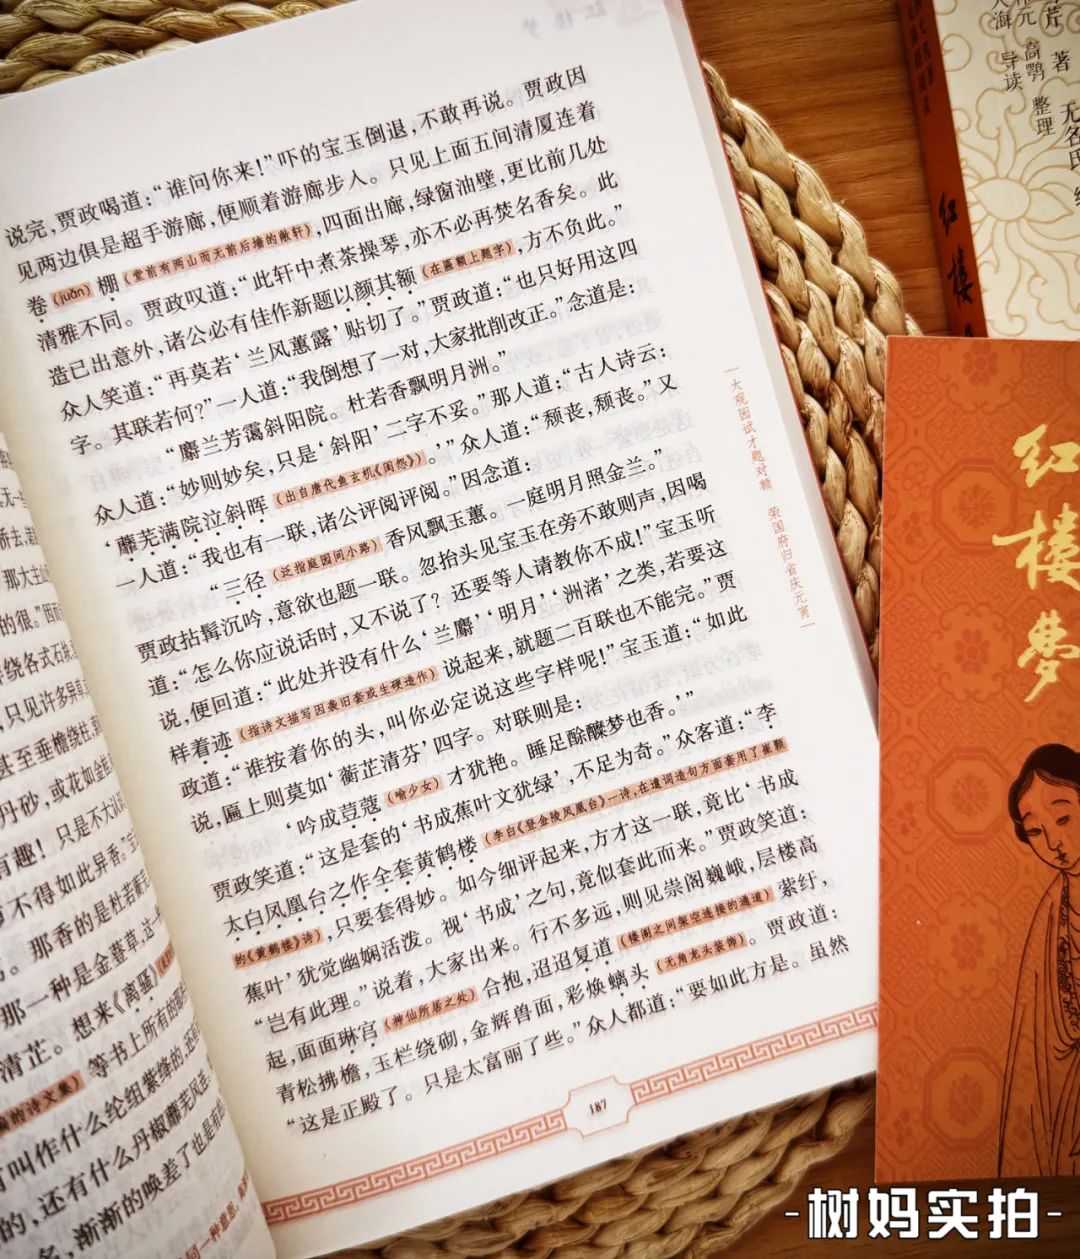 红楼梦
说完，贾政喝道：“谁问你来！”吓的宝玉倒退，不敢再说。贾政因
见两边俱是超手游廊，便顺着游廊步入。只见上面五间清厦连着
卷（juǎn）棚（堂前有两山而无前后墙的敞轩），四面出廊，绿窗油壁，更比前几处
清雅不同。贾政叹道：“此轩中煮茶操琴，亦不必再焚名香矣。此
造已出意外，诸公必有佳作新题以颜其额（在匾额上题字），方不负此。”
众人笑道：“再莫若‘兰风蕙露’贴切了。”贾政道：“也只好用这四
字。其联若何？”一人道：“我倒想了一对，大家批削改正。”念道是：
“麝兰芳霭斜阳院。杜若香飘明月洲。”
众人道：“妙则妙矣，只是‘斜阳’二字不妥。”那人道：“古人诗云：
‘蘼芜满院泣斜晖（出自唐代鱼玄机《闺怨》）。’”众人道：“颓丧，颓丧。”又
一人道：“我也有一联，诸公评阅评阅。”因念道：
“三径（泛指庭园间小路）香风飘玉蕙。一庭明月照金兰。”
贾政拈髯沉吟，意欲也题一联。忽抬头见宝玉在旁不敢则声，因喝
道：“怎么你应说话时，又不说了？还要等人请教你不成！”宝玉听
说，便回道：“此处并没有什么‘兰麝’‘明月’‘洲渚’之类，若要这
样着迹（指诗文描写因袭旧套或生硬造作）说起来，就题二百联也不能完。”贾
政道：“谁按着你的头，叫你必定说这些字样呢！”宝玉道：“如此
说，匾上则莫如‘蘅芷清芬’四字。对联则是：
‘吟成荳蔻（喻少女）才犹艳。睡足酴醾梦也香。’”
贾政笑道：“这是套的‘书成蕉叶文犹绿’，不足为奇。”众客道：“李
太白凤凰台之作全套黄鹤楼（李白《登金陵凤凰台》一诗，在遣词造句方面套用了崔颢
的《黄鹤楼》诗），只要套得妙。如今细评起来，方才这一联，竟比‘书成
蕉叶’犹觉幽娴活泼。视‘书成’之句，竟似套此而来。”贾政笑道：
“岂有此理。”说着，大家出来。行不多远，则见崇阁巍峨，层楼高
起，面面琳宫（神仙所居之处）合抱，迢迢复道（楼阁之间架空连接的通道）萦纡，
青松拂檐，玉栏绕砌，金辉兽面，彩焕螭头（无角龙头装饰）。贾政道：
“这是正殿了。只是太富丽了些。”众人都道：“要如此方是。虽然
187
大观园试才题对额 荣国府归省庆元宵
那大主
的很。”因而
绕各式石块
只见许多异草
甚至垂檐绕柱，萦
丹砂，或花如金桂
有趣！只是不大认
不得如此异香。”宝
那香的是杜若蘅芜
那一种是金䔲草，这一
清芷。想来《离骚》
等书上所有的那
叫作什么纶组紫绛的
的，还有什么丹椒蘼芜风莲
名，渐渐的唤差了也是有的
著 无名氏 续
高鹗 整理
导读
红楼
红楼梦
-树妈实拍-